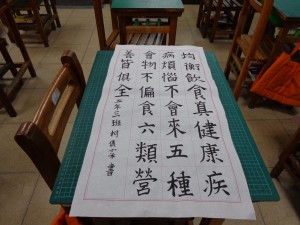 均衡飲食真健康疾
病煩惱不會來五種
食物不偏食六類營
養皆俱全 五年三班 柯 書